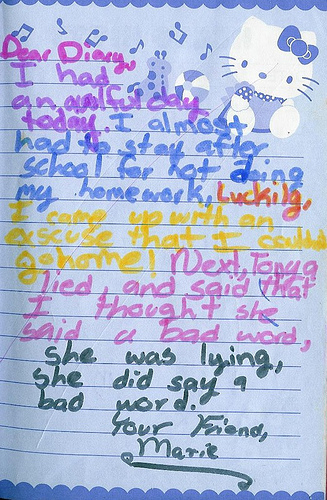 Dear Diary,
I had
an awlful day
today. I almost
had to stay after
school for not doing
my homework, Luckily,
I came up with an
exscuse that I could
go home! Next, Tonya
lied, and said that
I thought she
said a bad word,
she was lying,
she did say a
bad word.
Your Friend,
Marie